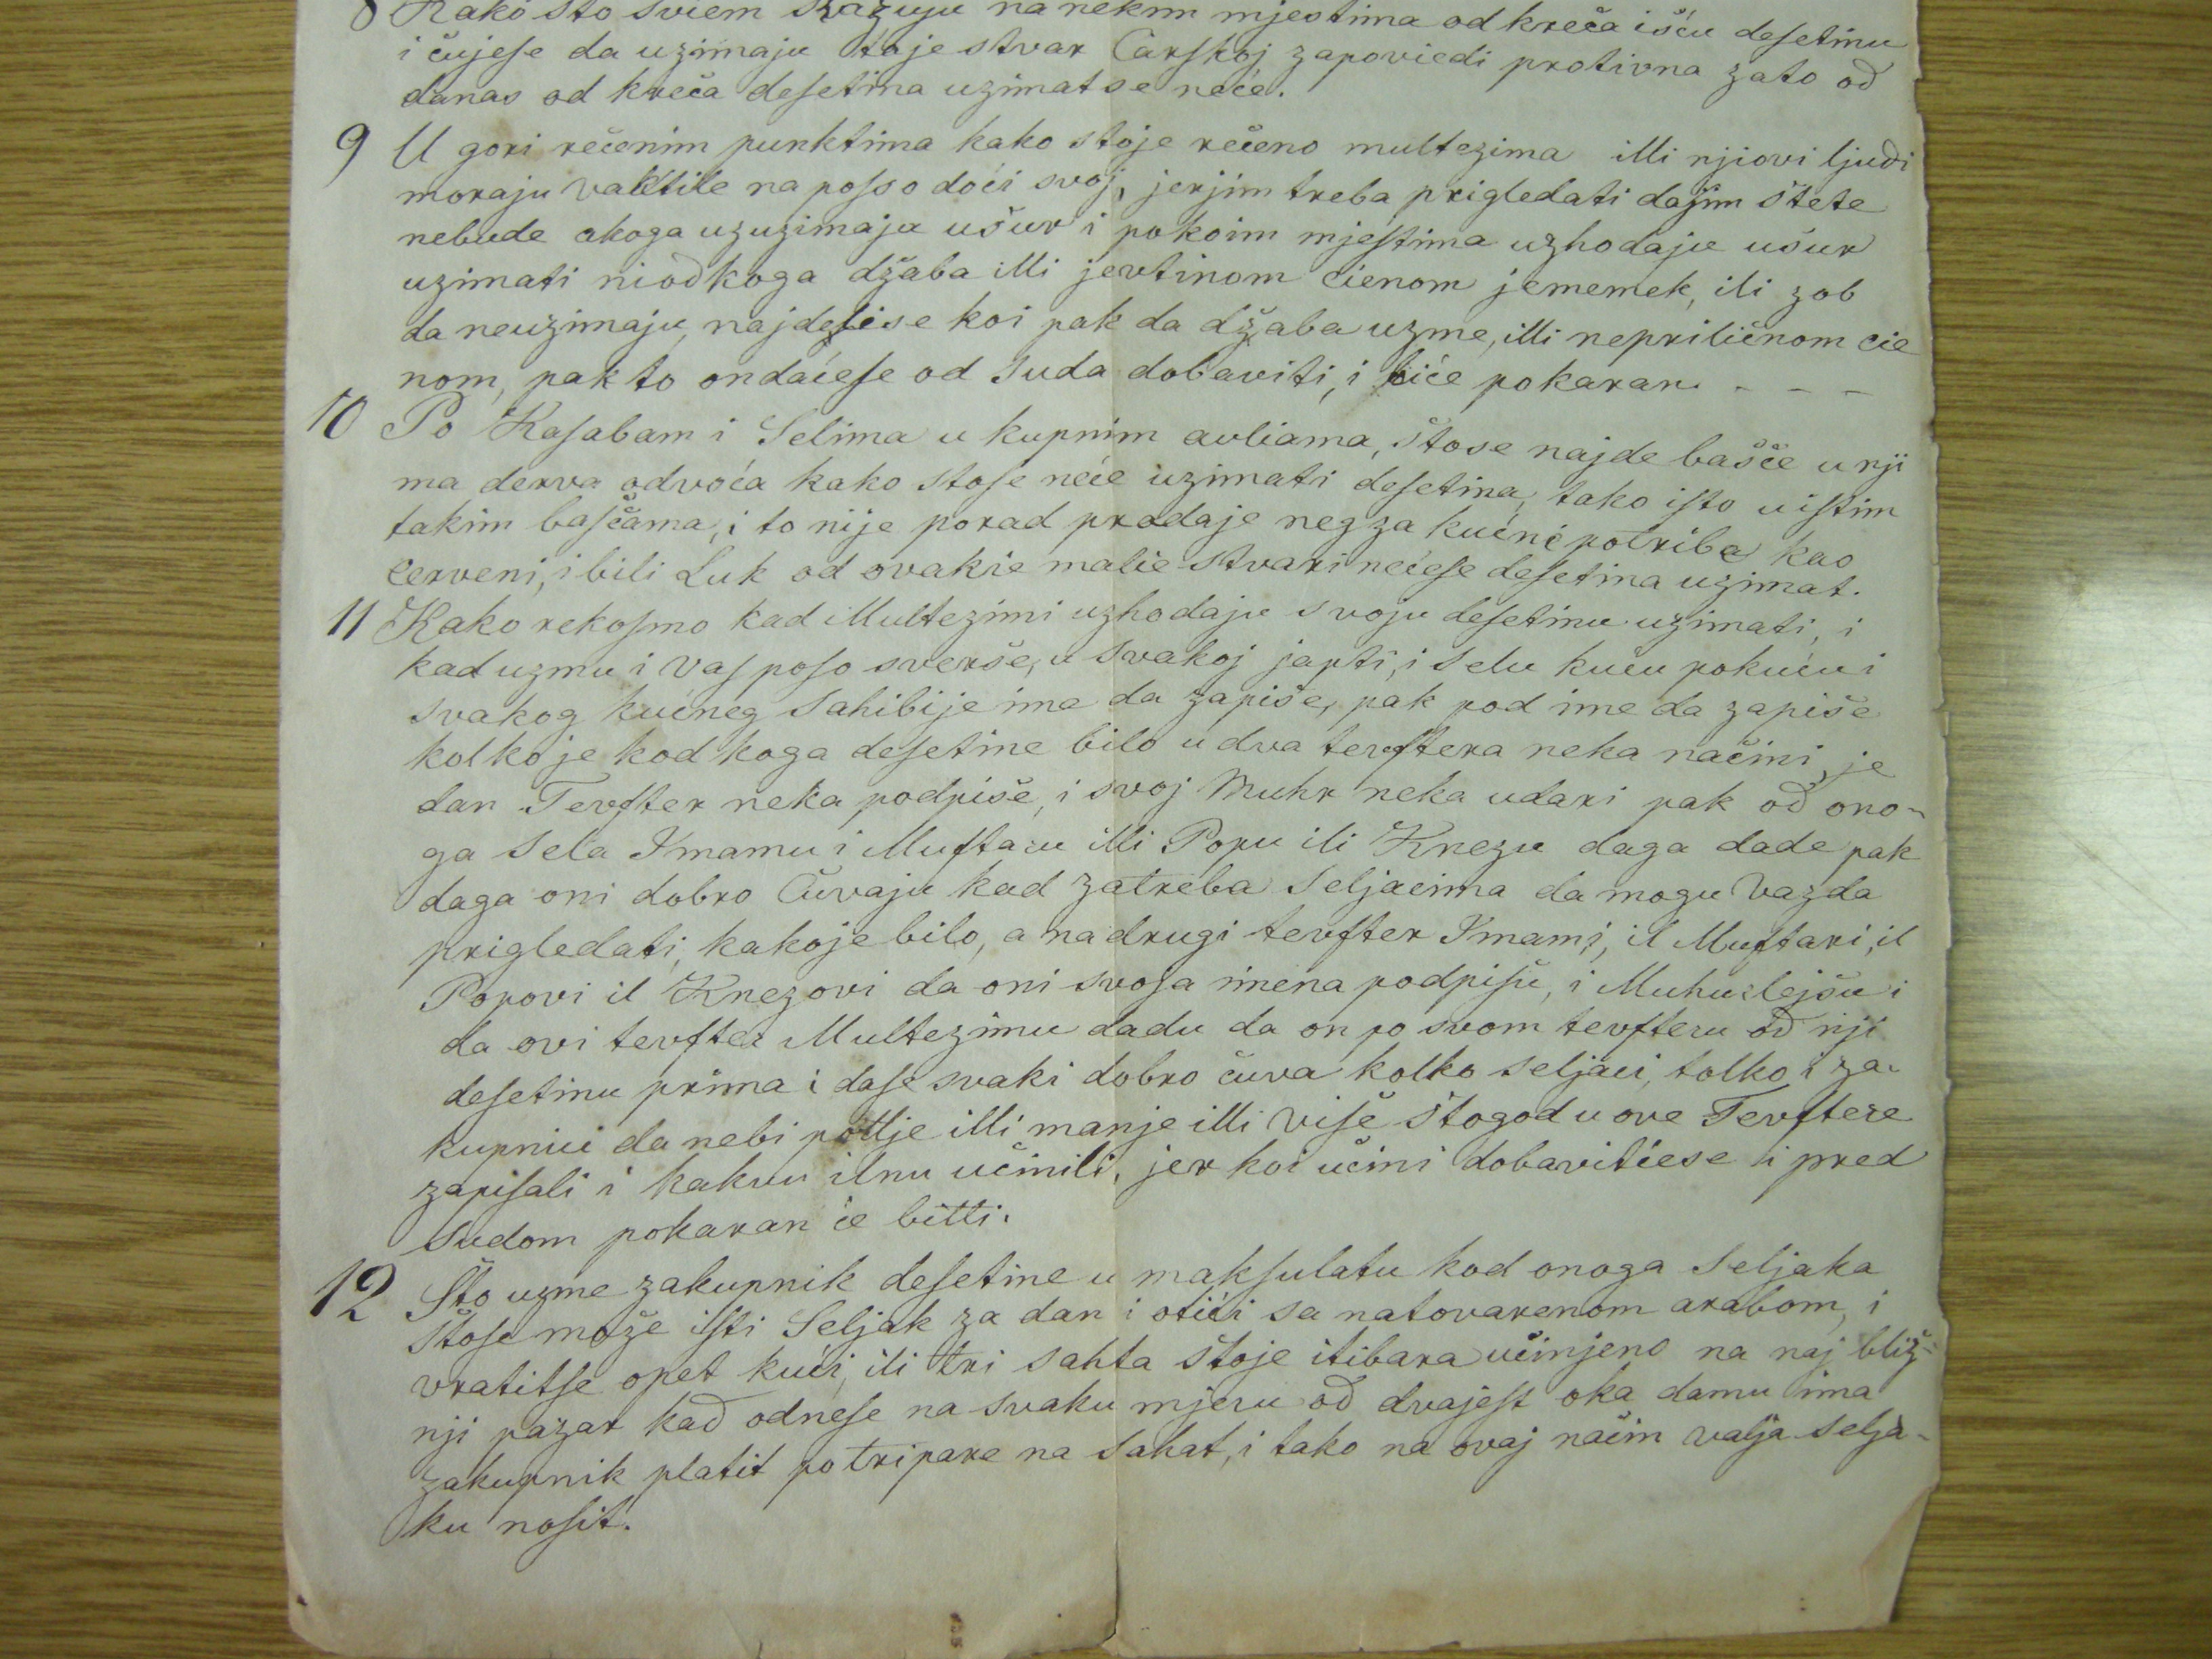 8 Kako što sviem skazuju na nekim mjestima od kreča išću desetinu
i čujese da uzimaju toje stvar Carskoj zapoviedi protivna zato od
danas od kreča desetina uzimatse neće.
9 U gori rečenim punktima kako stoje rečeno multezima illi njiovi ljudi
moraju vaktile na posso doći svoj, jerjim treba prigledati dajim štete
nebude akoga uzuzimaju ušur i pokoim mjestima uzhodaju ušur
uzimati niodkoga džaba illi jevtinom cienom jememek, ili zob
da neuzimaju, najdelise koi pak da džaba uzme, illi nepriličnom cie
nom, pak to ondaćese od Suda dobaviti, i biće pokaran. - - -
10 Po Kasabam i Selima u kupnim avliama, štose najde bašče u nji
ma derva odvoća kako stose neće uzimati desetina, tako isto u istim
takim basčama, i to nije porad prodaje neg za kućne potribe kao
cerveni, i bili Luk od ovakie malie stvari nećese desetina uzimat.
11 Kako rekosmo kad Multezimi uzhodaju svoju desetinu uzimati, i
kad uzmu i vas poso sverše, u svakoj japti, i Selu kuću pokuću i
svakog kućneg Sahibije ime da zapiše, pak pod ime da zapiše
kolkoje kod koga desetine bilo u dva tevftera neka načini, je
dan Tevfter neka podpiše, i svoj Muhr neka udari pak od ono-
ga Sela Imamu i Muftaru illi Popu ili Knezu daga dade pak
daga oni dobro čuvaju kad zatreba Seljacima da mogu Vazda
prigledati, kakoje bilo, a na drugi tevfter Imami, il Muftari, il
Popovi il Knezovi da oni svoja imena podpišu, i Muhurlejšu i
da ovi tevfter Multezimu dadu da on po svom tevfteru od nji
desetinu prima i dase svaki dobro čuva kolko seljaci, tolko i za-
kupnici da nebi potlje illi manje illi više štogod u ove Tevftere
zapisali i kakvu ilnu učinili, jer koi učini dobavitićese i pred
Sudom pokaran će bitti.
12 Što uzme zakupnik desetine u maksulatu kod onoga Seljaka
štose može isti Seljak za dan i otići sa natovarenom arabom, i
vratitse opet kući, ili tri sahta štoje itibara učinjeno na naj bliž-
nji pazar kad odnese na svaku mjeru od dvajest oka damu ima
zakupnik platit po tripare na Sahat, i tako na ovaj način valja selja-
ku nosit.